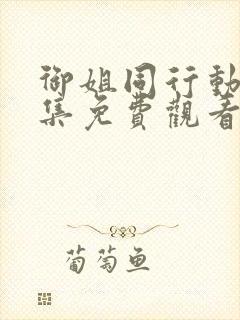 御姐同行動
集免費觀看
葡萄鱼